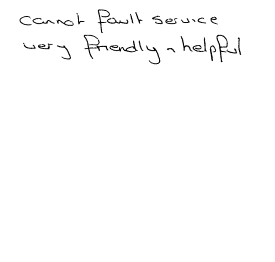 cannot fault service
very friendly n helpful